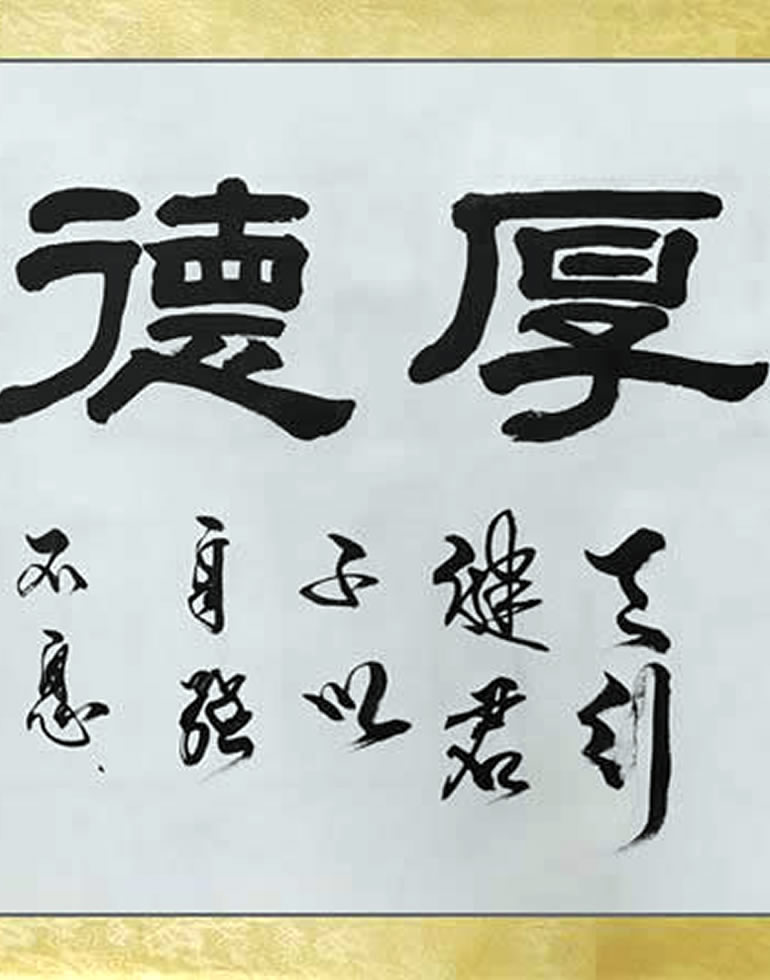 厚德
天行
健君
子以
自强
不息